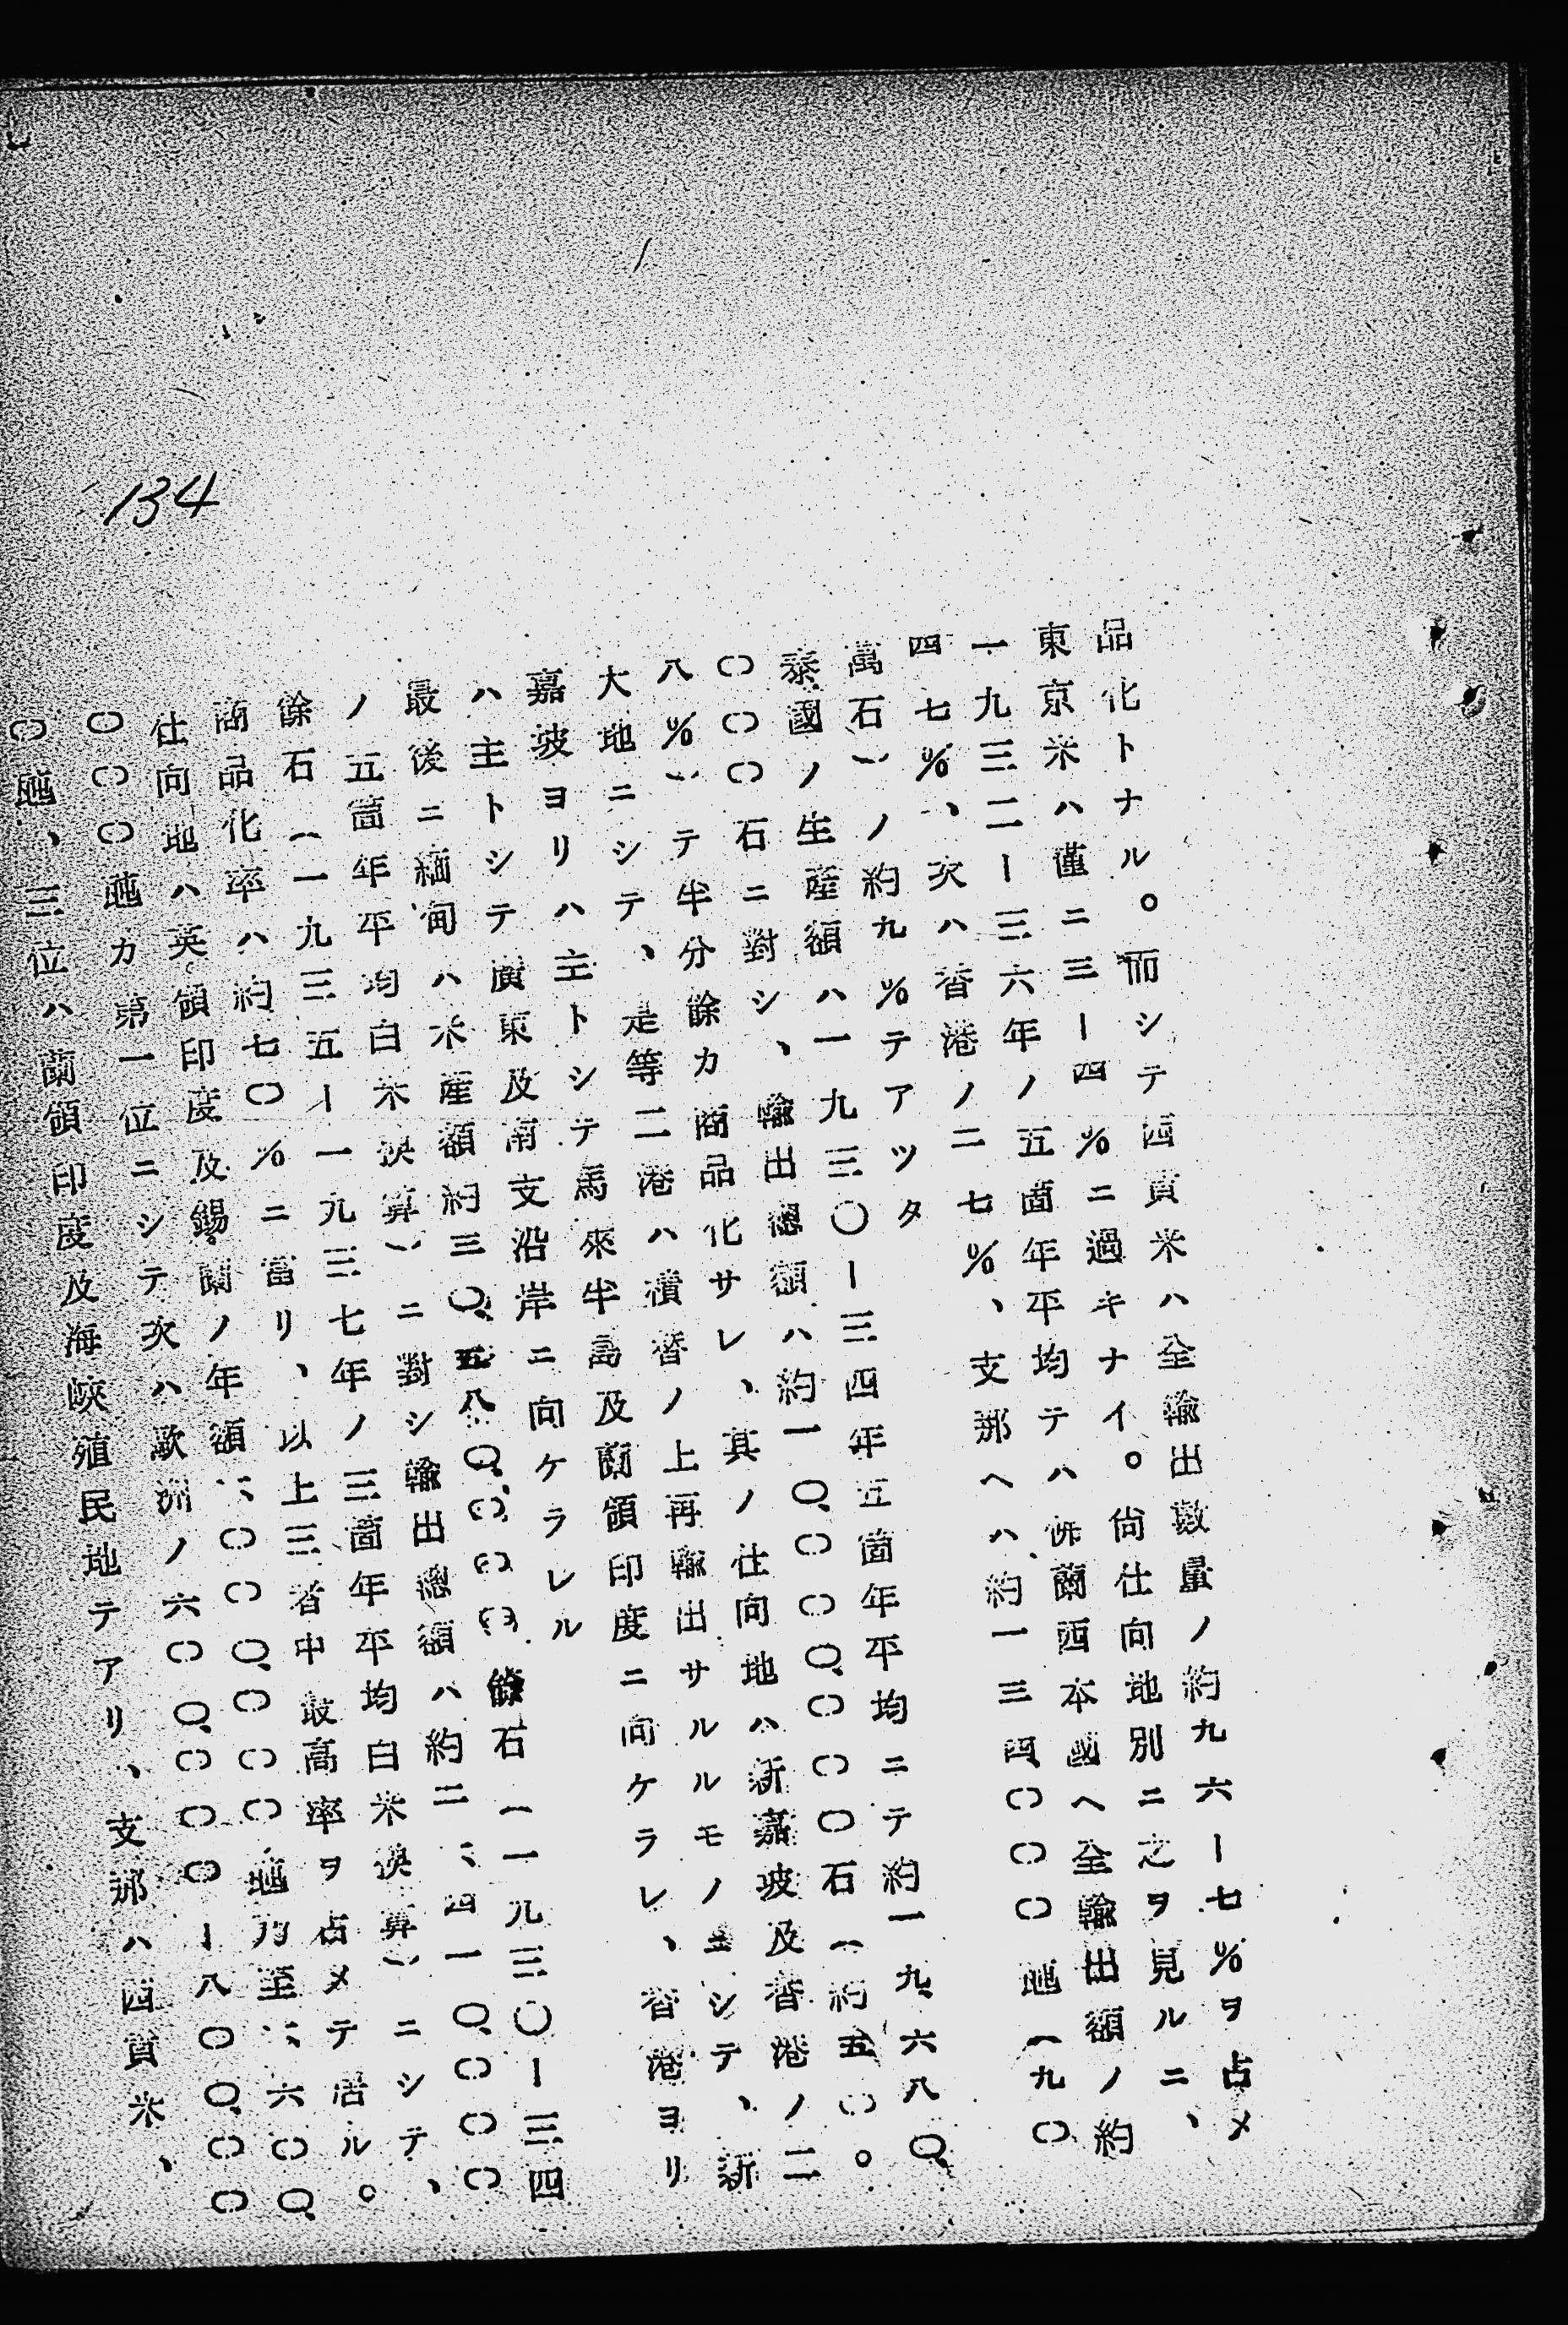 品化トナル。而シテ西貢米ハ全輸出數量ノ約九六ー七％ヲ占メ
東京米ハ僅ニ三ー四％ニ過キナイ。尚仕向地別ニ之ヲ見ルニ、
一九三二ー三六年ノ五箇年平均テハ佛蘭西本國ヘ全輸出額ノ約
四七％、次ハ香港ノ二七％、支那ヘハ約一三四〇〇〇瓲（九〇
萬石）ノ約九％テアツタ
泰國ノ生産額ハ一九三〇ー三四年五箇年平均ニテ約一九、六八〇、
〇〇〇石ニ對シ、輸出總額ハ約一〇、〇〇〇、〇〇〇石（約五〇。
八％）テ半分餘カ商品化サレ、其ノ仕向地ハ新嘉坡及香港ノ二
大地ニシテ、是等二港ハ積替ノ上再輸出サルルモノニシテ、新
嘉坡ヨリハ主トシテ馬來半島及蘭領印度ニ向ケラレ、香港ヨリ
ハ主トシテ廣東及南支沿岸ニ向ケラレル
最後ニ緬甸ハ米産額約三〇、五八〇、〇〇〇餘石（一九三〇ー三四
ノ五箇年平均白米換算）ニ對シ輸出總額ハ約二一、四一〇、〇〇〇
餘石（一九三五ー一九三七年ノ三箇年平均白米換算）ニシテ、
商品化率ハ約七〇％ニ當リ、以上三者中最高率ヲ占メテ居ル。
仕向地ハ英領印度及錫蘭ノ年額一、〇〇〇、〇〇〇瓲乃至一、六〇〇、
〇〇〇瓲カ第一位ニシテ次ハ歐洲ノ六〇〇、〇〇〇ー八〇〇、〇〇
〇瓲、三位ハ蘭領印度及海峽殖民地テアリ、支那ハ西貢米、
134